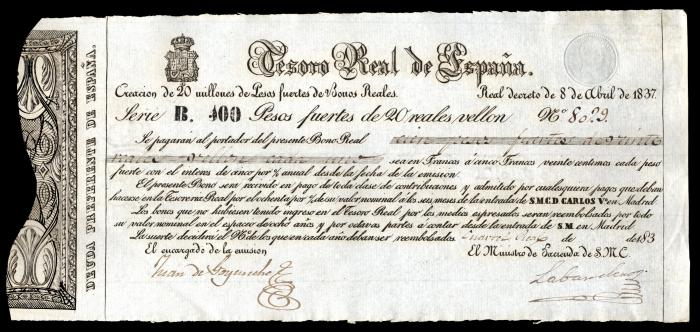 DEUDA PREFERENTE DE ESPAÑA.
Tesoro Real de España.
Creacion de 20 millones de Pesos fuertes de Bonos Reales.
Real decreto de 8 de Abril de 1837.
Serie B. 100 Pesos fuertes de 20 reales vellon Nº 8029.
Se pagarán al portador del presente Bono Real cien pesos fuertes de veinte
reales vellon cada uno sea en Francos á cinco Francos veinte centimos cada peso
fuerte con el interes de cinco por % anual desde la fecha de la emision.
El presente Bono sera recivido en pago de toda clase de contribuciones y admitido por cualesquiera pagos que deban
hacerse en la Tesoreria Real por el ochenta por % de su valor nominal á los seis meses de la entrada de S.M.C.D CARLOS Vº en Madrid
Los bonos que no hubiesen tenido ingreso en el Tesoro Real por los medios espresados seran reembolsados por todo
su valor nominal en el espacio de ocho años y por octavas partes á contar desde la entrada de S.M en Madrid
La suerte decidira el Nº de los que en cada año deban ser reembolsados de de 183
El encargado de la emision
El Ministro de Hacienda de S.M.C.
Juan de
Labandero